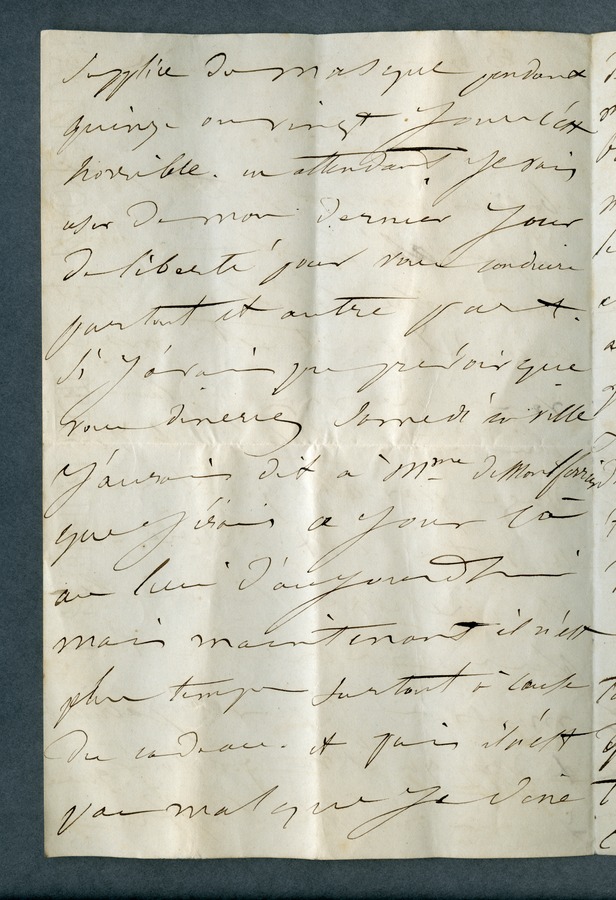 Supplice du masque pendant
quinze ou vingt jours c'est
horrible. en attendant je vais
user de mon dernier jour
de liberté pour vous conduire
partout et autre part.
Si j'avais pu prévoir que
vous dineriez Samedi en ville
J'aurais dit à Mme de Montferrand
que j'irais ce jour là
au lieu d'aujourdhui
mais maintenant il n'est
plus temps surtout à cause
du cadeau. et puis il n'est
pas mal que je dine